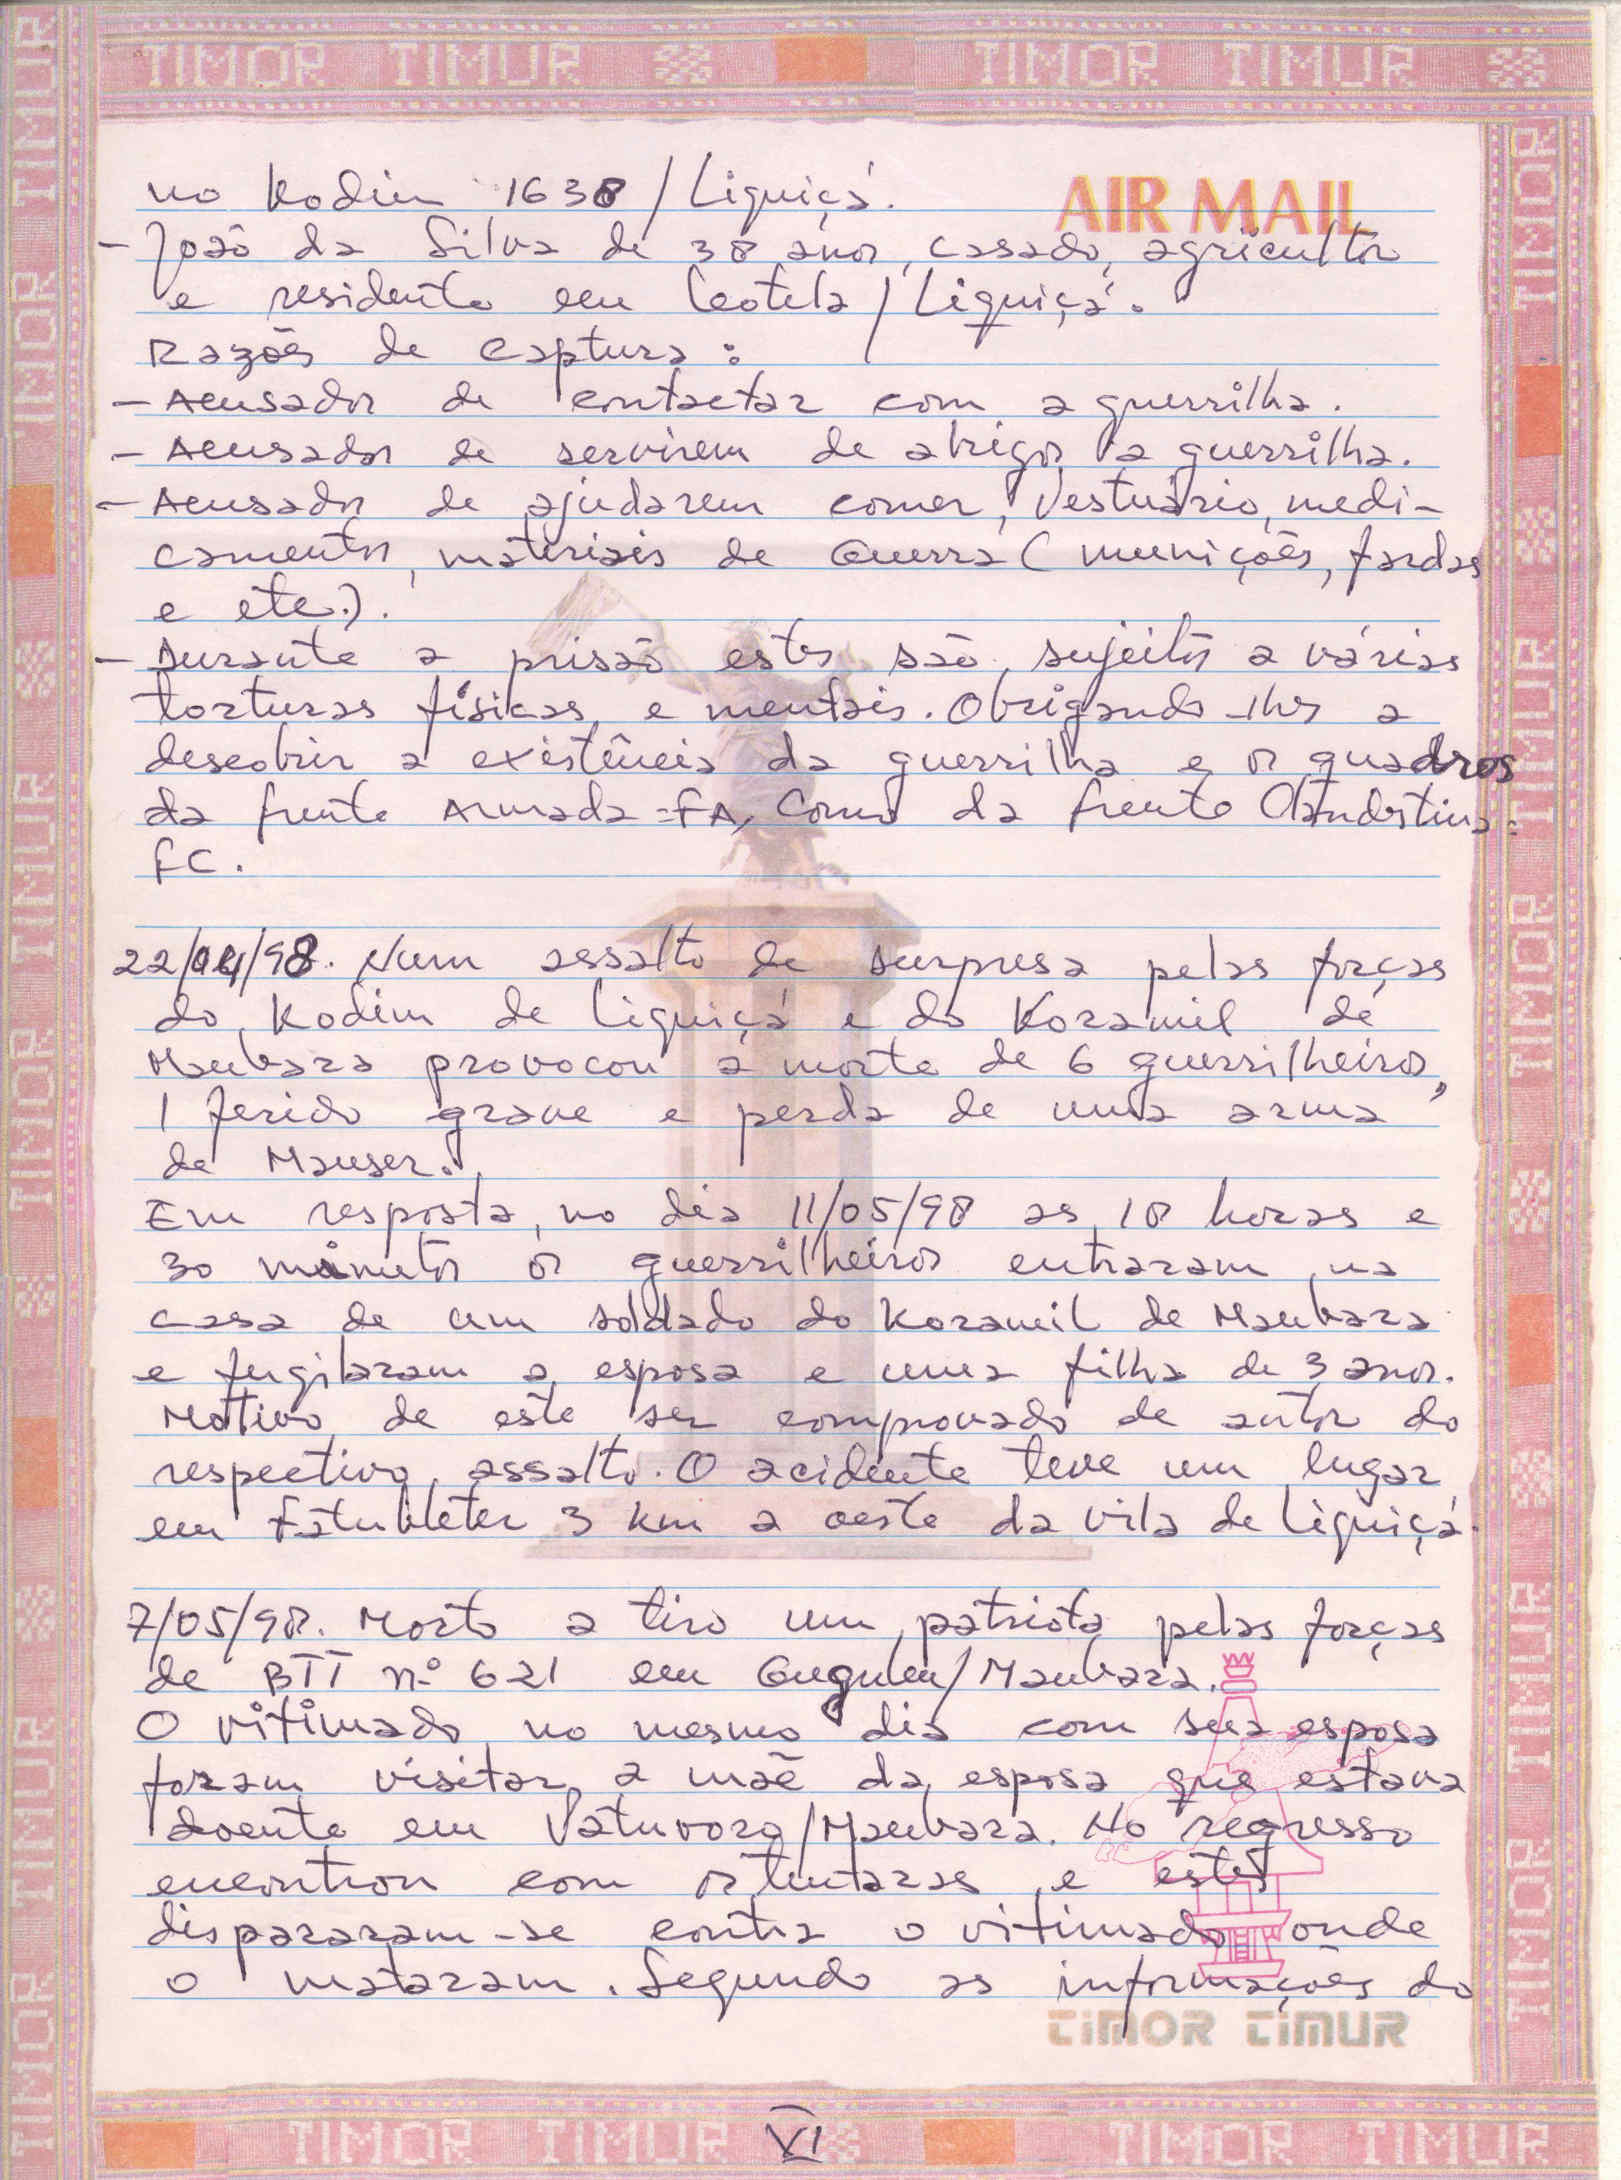 TIMOR TIMUR TIMOR TIMUR
AIR MAIL
no Kodim 1638/Liquiçá.
- João da Silva de 38 anos, casado, agricultor
e residente em Leotela/Liquiçá.
Razões de captura:
- Acusados de contactar com a guerrilha.
- Acusados de servirem de abrigos a guerrilha.
- Acusados de ajudarem comer, Vestuário, medi-
camentos, materiais de Guerra (munições, fardas
e etc.).
- Durante a prisão estes são sujeitos a várias
torturas físicas e mentais. Obrigando-lhes a
descobrir a existência da guerrilha e os quadros
da frente Armada=FA, Como da frente Clandestina=
FC.
22/04/98. Num assalto de surpresa pelas forças
do Kodim de Liquiçá e do Koramil de
Maubara provocou a morte de 6 guerrilheiros,
1 ferido grave e perda de uma arma
de Mauser.
Em resposta, no dia 11/05/98 as 18 horas e
30 minutos os guerrilheiros entraram na
casa de um soldado do Koramil de Maubara
e fugilaram a esposa e uma filha de 3 anos.
Motivo de este ser comprovado de autor do
respectivo assalto. O acidente teve um lugar
em 3 km a oeste da vila de Liquiçá.
7/05/98. Morto a tiro um patriota pelas forças
de BTT nº 621 em Guguleu/Maubara.
O vitimado no mesmo dia com sua esposa
foram visitar a mãe da esposa que estava
doente em Vatuvoro/Maubara. No regresso
encontrou com os tentaras e estes
dispararam-se contra o vitimado onde
o mataram. Segundo as informações do
TIMOR TIMUR
TIMOR TIMUR VI TIMOR TIMUR